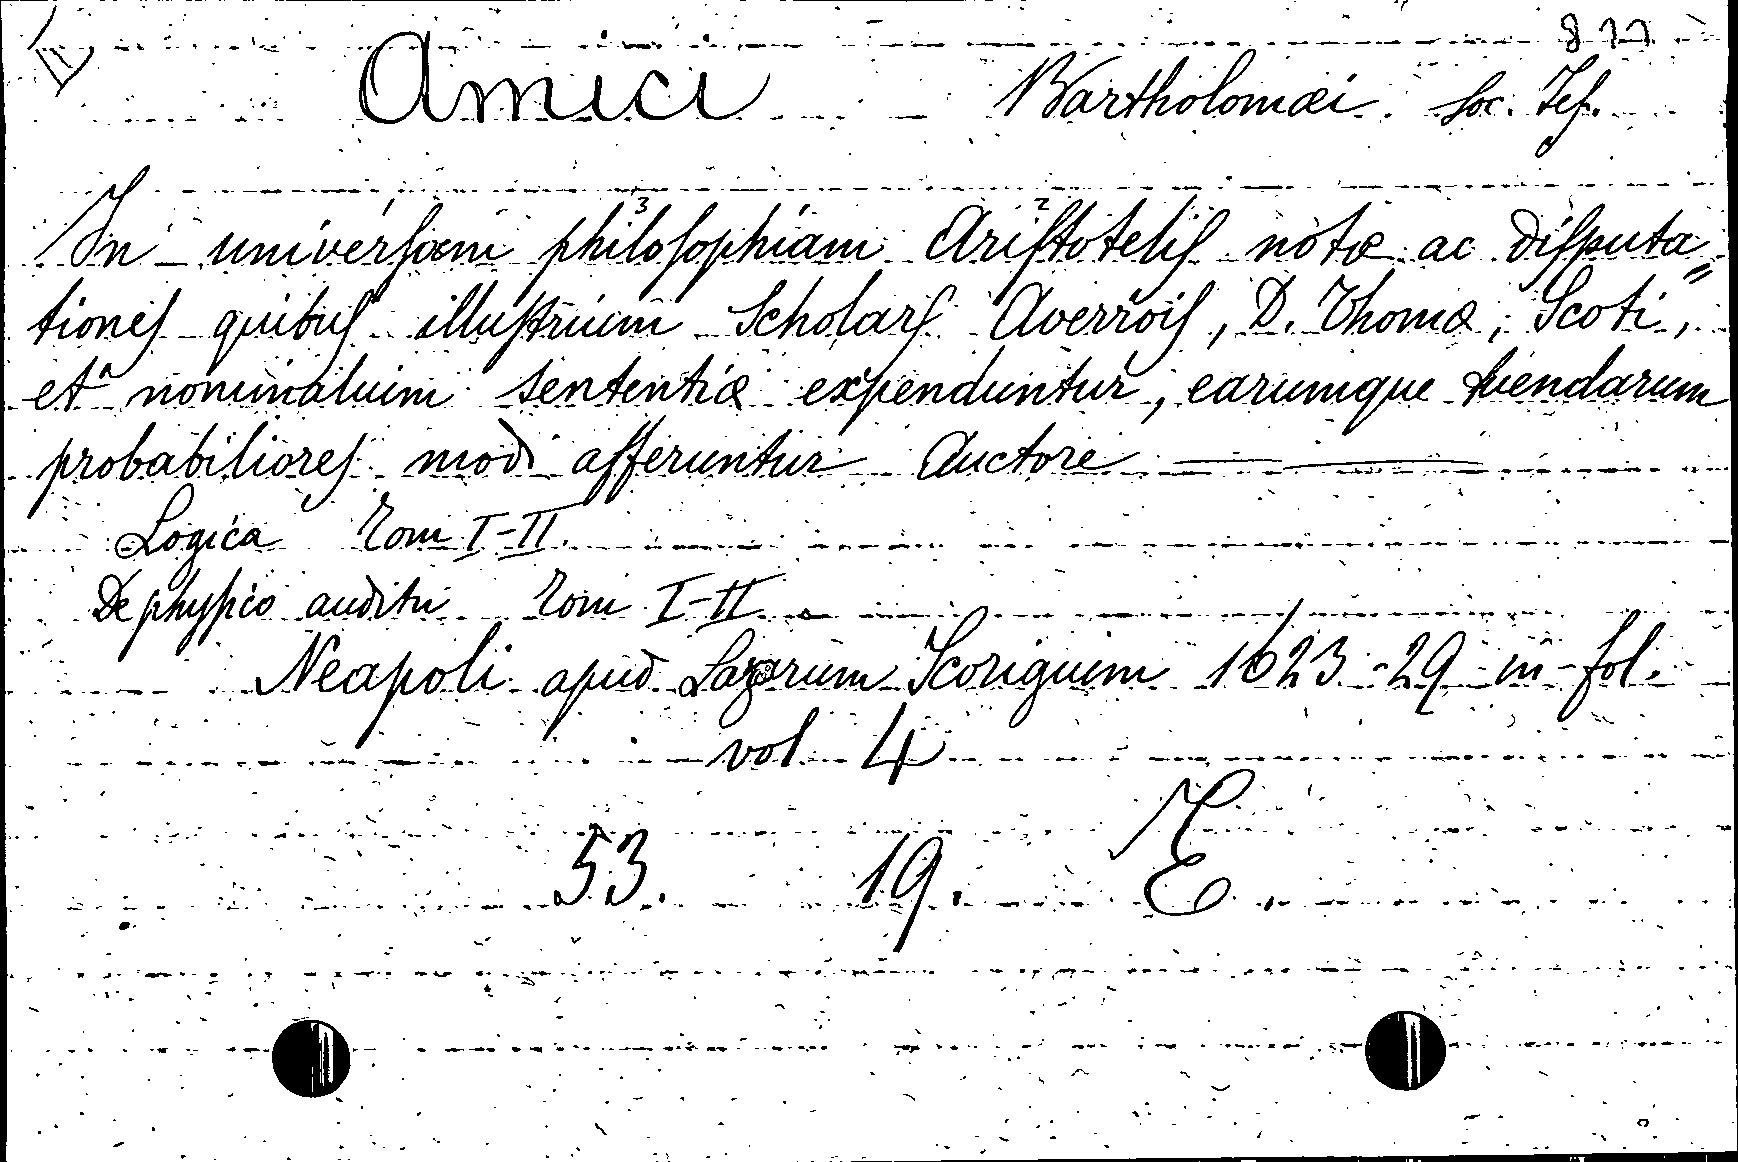 877
Amici Bartholomæi Soc. Jes.
In universam philosophiam Aristotelis notæ ac disputa„
tiones quibus illustrium Scholars Averrois, D. Thomæ, Scoti,
et nominalium sententiæ expenduntur, earumque tuendarum
probabiliores modi afferuntur Auctore ——
Logica Tom I-II.
De physico auditu Tom I-II.
Neapoli apud Lazarum Scorigium 1623-29 in-fol.
vol 4
53. 19. E.